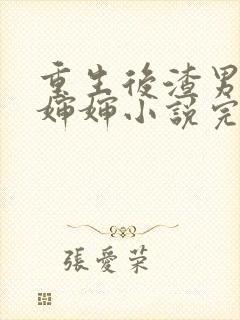 重生後渣男
婶婶小説完
張愛荣